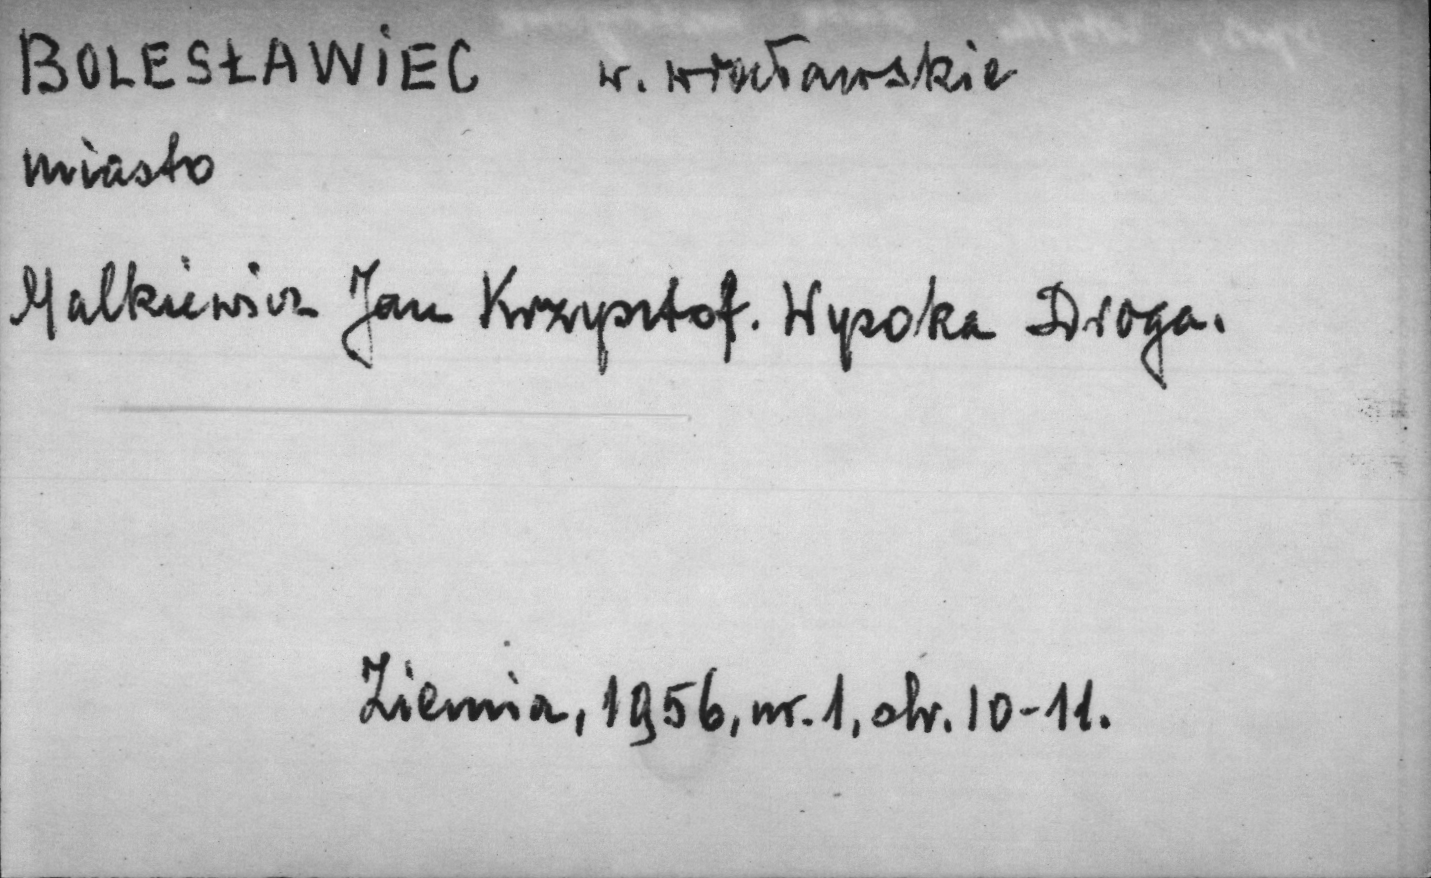 BOLESŁAWIEC w. wrocławskie
miasto
Malkiewicz Jan Krzysztof. Wysoka Droga.
Ziemia, 1956, nr. 1, str. 10-11.